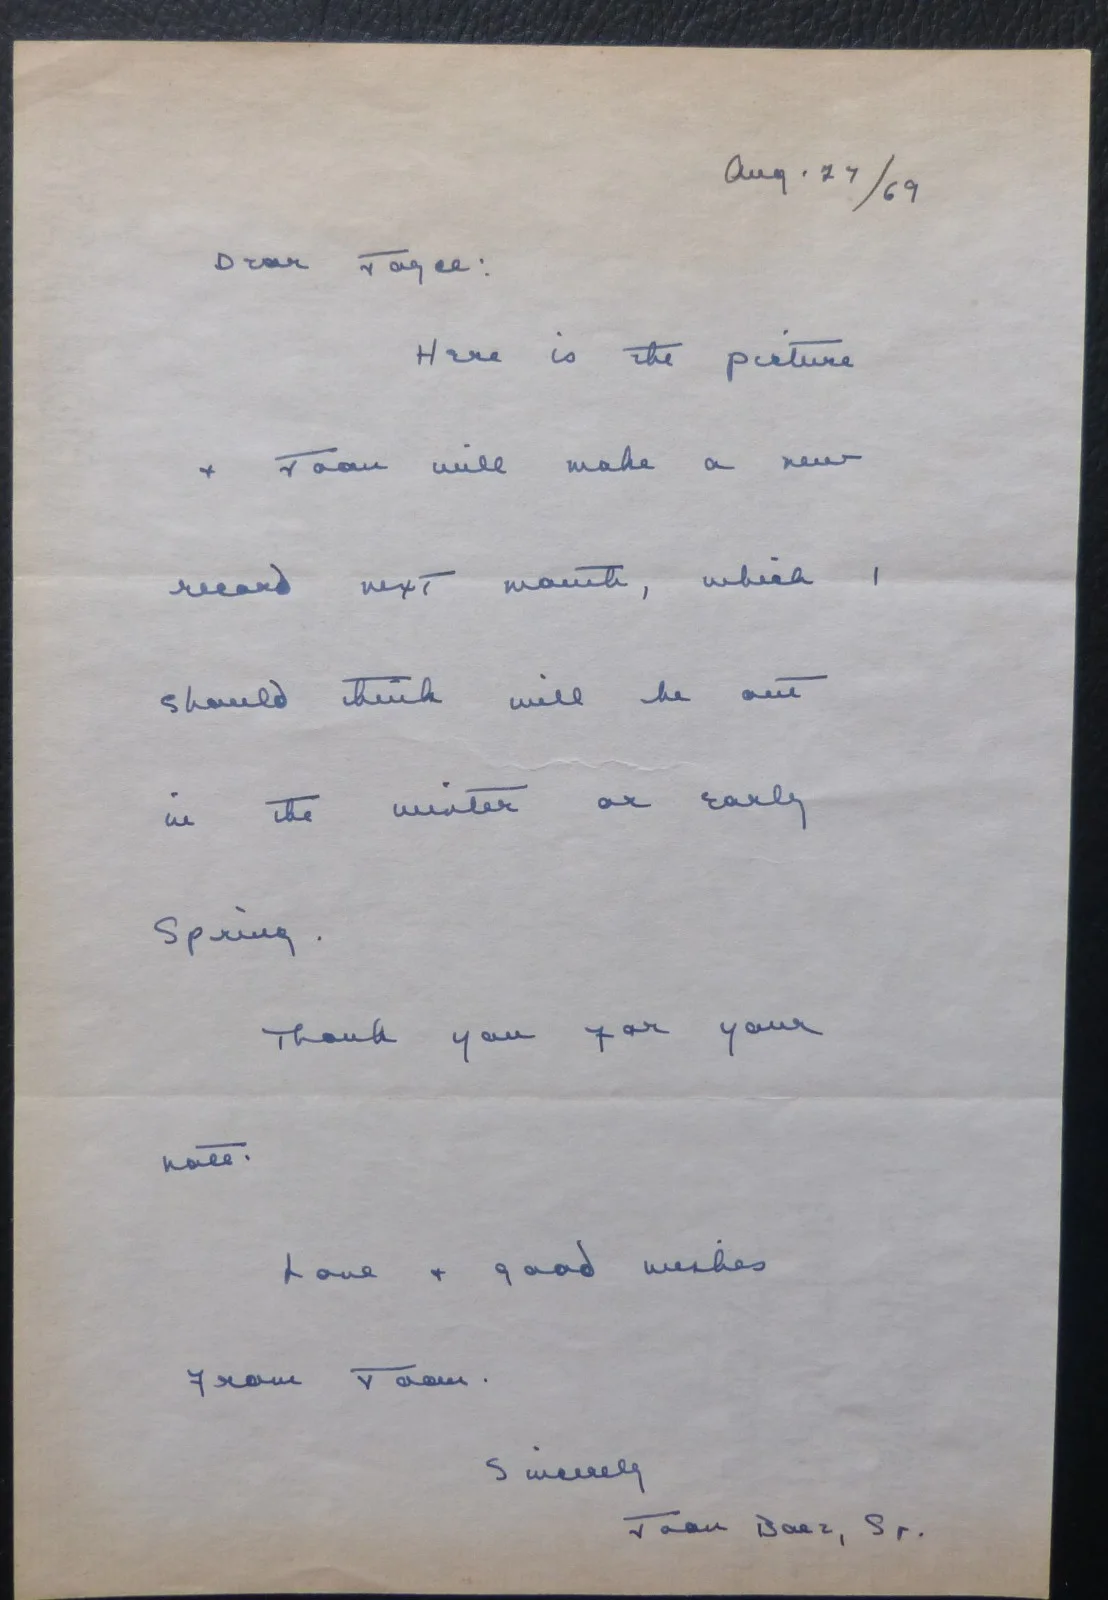 Aug. 27/69
Dear Joyce:
Here is the picture
+ Joan will make a new
record next month, which I
should think will be out
in the winter or early
Spring.
Thank you for your
note.
Love + good wishes
From Joan.
Sincerely
Joan Baez, Sr.